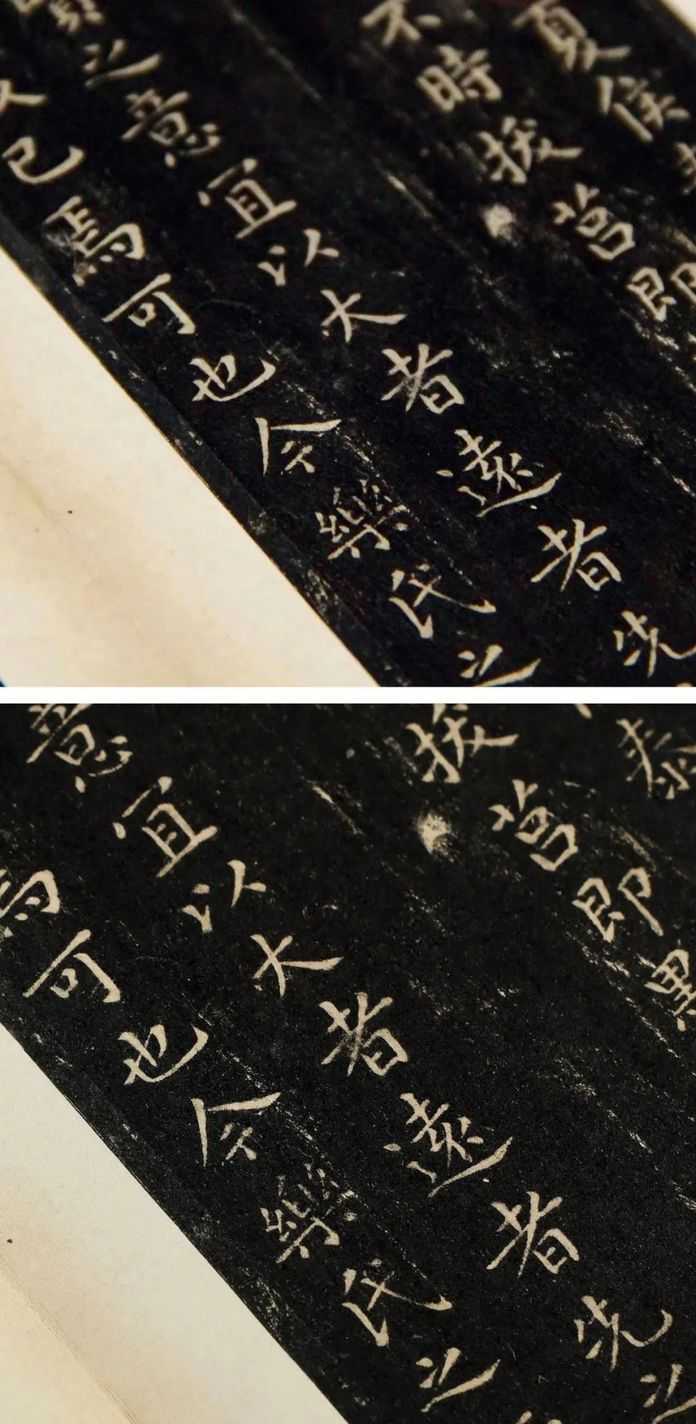 夏侯泰
不時拔莒即
之意宜以大者遠者先
已焉可也今樂氏之
泰
拔莒即墨
意宜以大者遠者先之
焉可也今樂氏之